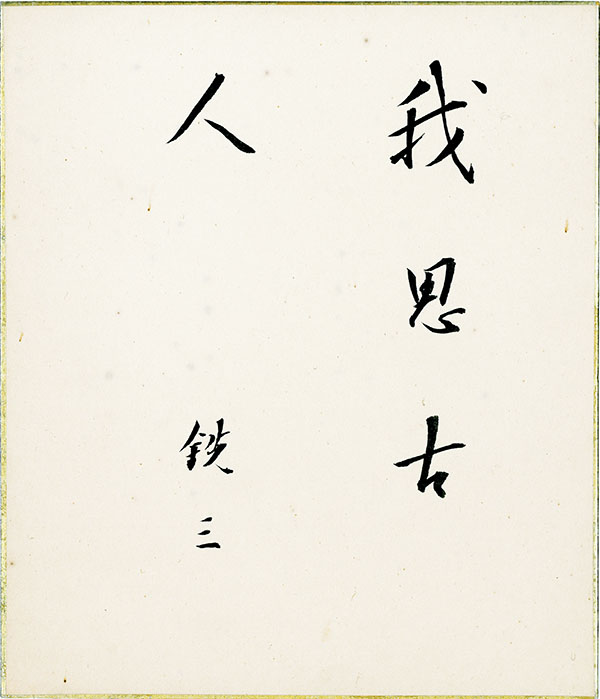 我思古
人
銑三